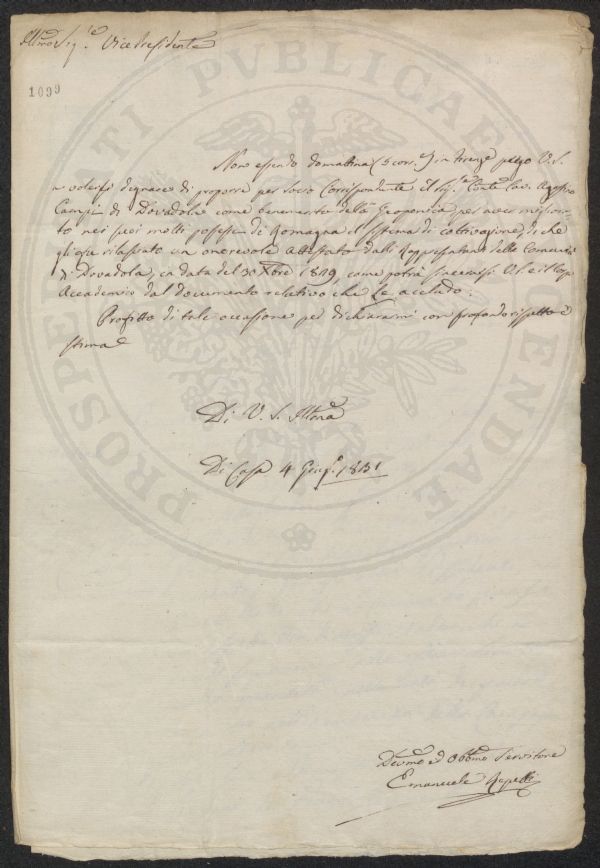 Illmo Sig.re Vice Presidente
1099
Non essendo domattina (5 corr.e) in Firenze prego V. S.
a volersi degnare di proporre per Socio Corrispondente il Sig.r Conte Cav.
Campi di Dovadola come benemerito della Geoponica per aver
nei suoi molti possessi di Romagna il sistema di coltivazione, di che
gli fu rilasciato un onorevole attestato dalli Rappresentanti della Comunità
di Dovadola, in data del 30 Xbre 1829, come potrà V.S. e il Corpo
Accademico dal documento relativo che Le accludo.
Profitto di tale occasione per dichiararmi con profondo rispetto e
stima
Di V. S. Illma
Di Casa 4 1831
Devmo ed Obbmo Servitore
Emanuele Repetti
PROSPERITATI PVBLICAE AVGENDAE